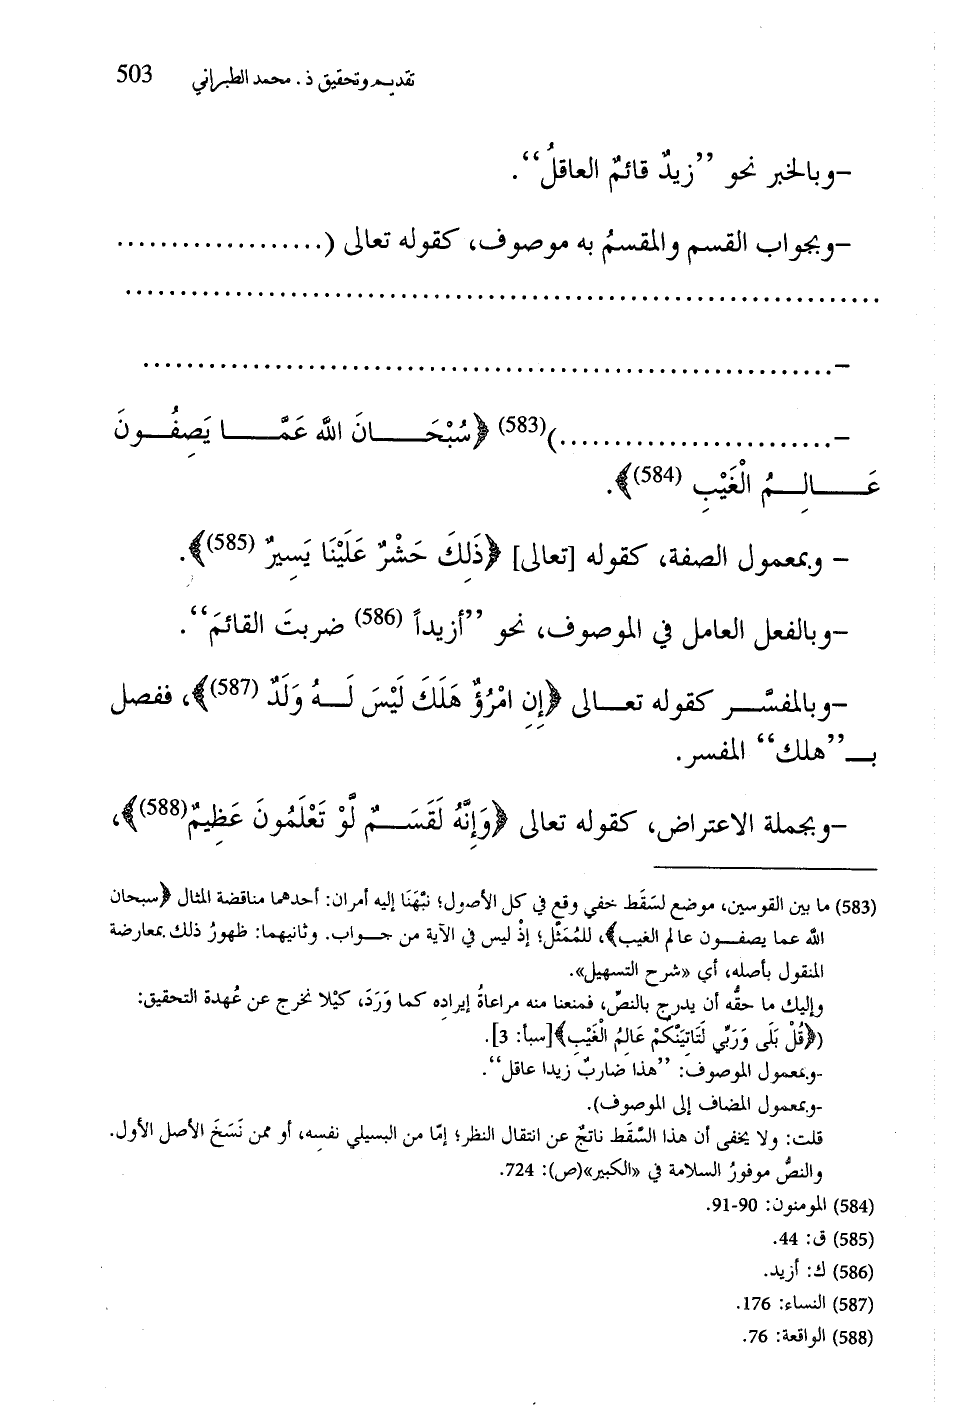 تقديم وتحقيق ذ. محمد الطبراني 503
-وبالخبر نحو ”زيدٌ قائمٌ العاقلُ“.
-وبجواب القسم والمقسمُ به موصوف، كقوله تعالى (...................
......................................................................
-................................................................
-.........................)(583) ﴿سُبْحَـــانَ اللَّه عَمَّـــا يَصِفُـــونَ
عَـــالِـــمُ الْغَيْبِ (584)﴾.
- وبمعمول الصفة، كقوله [تعالى] ﴿ذَلِكَ حَشْرٌ عَلَيْنَا يَسِيرٌ (585)﴾.
-وبالفعل العامل في الموصوف، نحو ”أزيداً (586) ضربتَ القائمَ“.
-وبالمفسَّـــر كقوله تعـــالى ﴿إِن امْرُؤٌ هَلَكَ لَيْسَ لَـــهُ وَلَدٌ (587)﴾، ففصل
بـــ”هلك“ المفسر.
-وبجملة الاعتراض، كقوله تعالى ﴿وَإِنَّهُ لَقَسَـــمٌ لَّوْ تَعْلَمُونَ عَظِيمٌ(588)﴾،
(583) ما بين القوسين، موضع لسَقَط خفي وقع في كل الأصول؛ نبَّهَنَا إليه أمران: أحدهما مناقضة المثال ﴿سبحان
الله عما يصفـــون عالم الغيب﴾، للمُمَثَّل؛ إذْ ليس في الآية من جـــواب. وثانيهما: ظهورُ ذلك بمعارضة
المنقول بأصله، أي «شرح التسهيل».
وإليك ما حقُّه أن يدرج بالنصِّ، فمنعنا منه مراعاةُ إيراده كما وَرَدَ، كَيْلا نخرج عن عُهدة التحقيق:
(﴿قُلْ بَلَى وَرَبِّي لَتَاتِيَنَّكُمْ عَالِمُ الْغَيْبِ﴾[سبأ: 3].
-وبمعمول الموصوف: ”هذا ضاربٌ زيدا عاقل“.
-وبمعمول المضاف إلى الموصوف).
قلت: ولا يخفى أن هذا السَّقط ناتجٌ عن انتقال النظر؛ إمّا من البسيلي نفسِه، أو ممن نَسَخَ الأصل الأول.
والنصُّ موفورُ السلامة في «الكبير»(ص): 724.
(584) المومنون: 90-91.
(585) ق: 44.
(586) ك: أزيد.
(587) النساء: 176.
(588) الواقعة: 76.